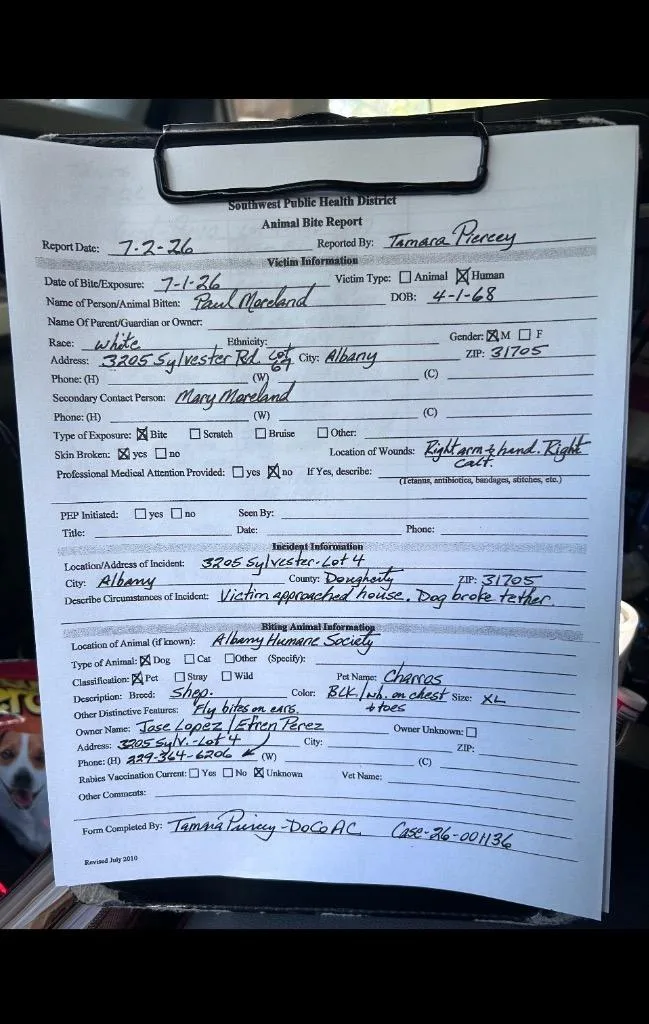 Southwest Public Health District
Animal Bite Report
Report Date: 7-2-26 Reported By: Tamara Piercey
Victim Information
Date of Bite/Exposure: 7-1-26 Victim Type: ☐ Animal ☒ Human
Name of Person/Animal Bitten: Paul Moreland DOB: 4-1-68
Name Of Parent/Guardian or Owner:
Race: white Ethnicity: Gender: ☒ M ☐ F
Address: 3205 Sylvester Rd. Lot 67 City: Albany ZIP: 31705
Phone: (H) (W) (C)
Secondary Contact Person: Mary Moreland
Phone: (H) (W) (C)
Type of Exposure: ☒ Bite ☐ Scratch ☐ Bruise ☐ Other:
Skin Broken: ☒ yes ☐ no Location of Wounds: Right arm & hand. Right calf.
Professional Medical Attention Provided: ☐ yes ☒ no If Yes, describe:
(Tetanus, antibiotics, bandages, stitches, etc.)
PEP Initiated: ☐ yes ☐ no Seen By:
Title: Date: Phone:
Incident Information
Location/Address of Incident: 3205 Sylvester - Lot 4
City: Albany County: Dougherty ZIP: 31705
Describe Circumstances of Incident: Victim approached house. Dog broke tether.
Biting Animal Information
Location of Animal (if known): Albany Humane Society
Type of Animal: ☒ Dog ☐ Cat ☐ Other (Specify):
Classification: ☒ Pet ☐ Stray ☐ Wild Pet Name: Charros
Description: Breed: Shep. Color: BLK/wh. on chest & toes Size: XL
Other Distinctive Features: Fly bites on ears.
Owner Name: Jose Lopez / Efren Perez Owner Unknown: ☐
Address: 3205 Sylv. - Lot 4 City: ZIP:
Phone: (H) 229-364-6206 (W) (C)
Rabies Vaccination Current: ☐ Yes ☐ No ☒ Unknown Vet Name:
Other Comments:
Form Completed By: Tamara Piercey - DoCo AC Case-26-001136
Revised July 2010